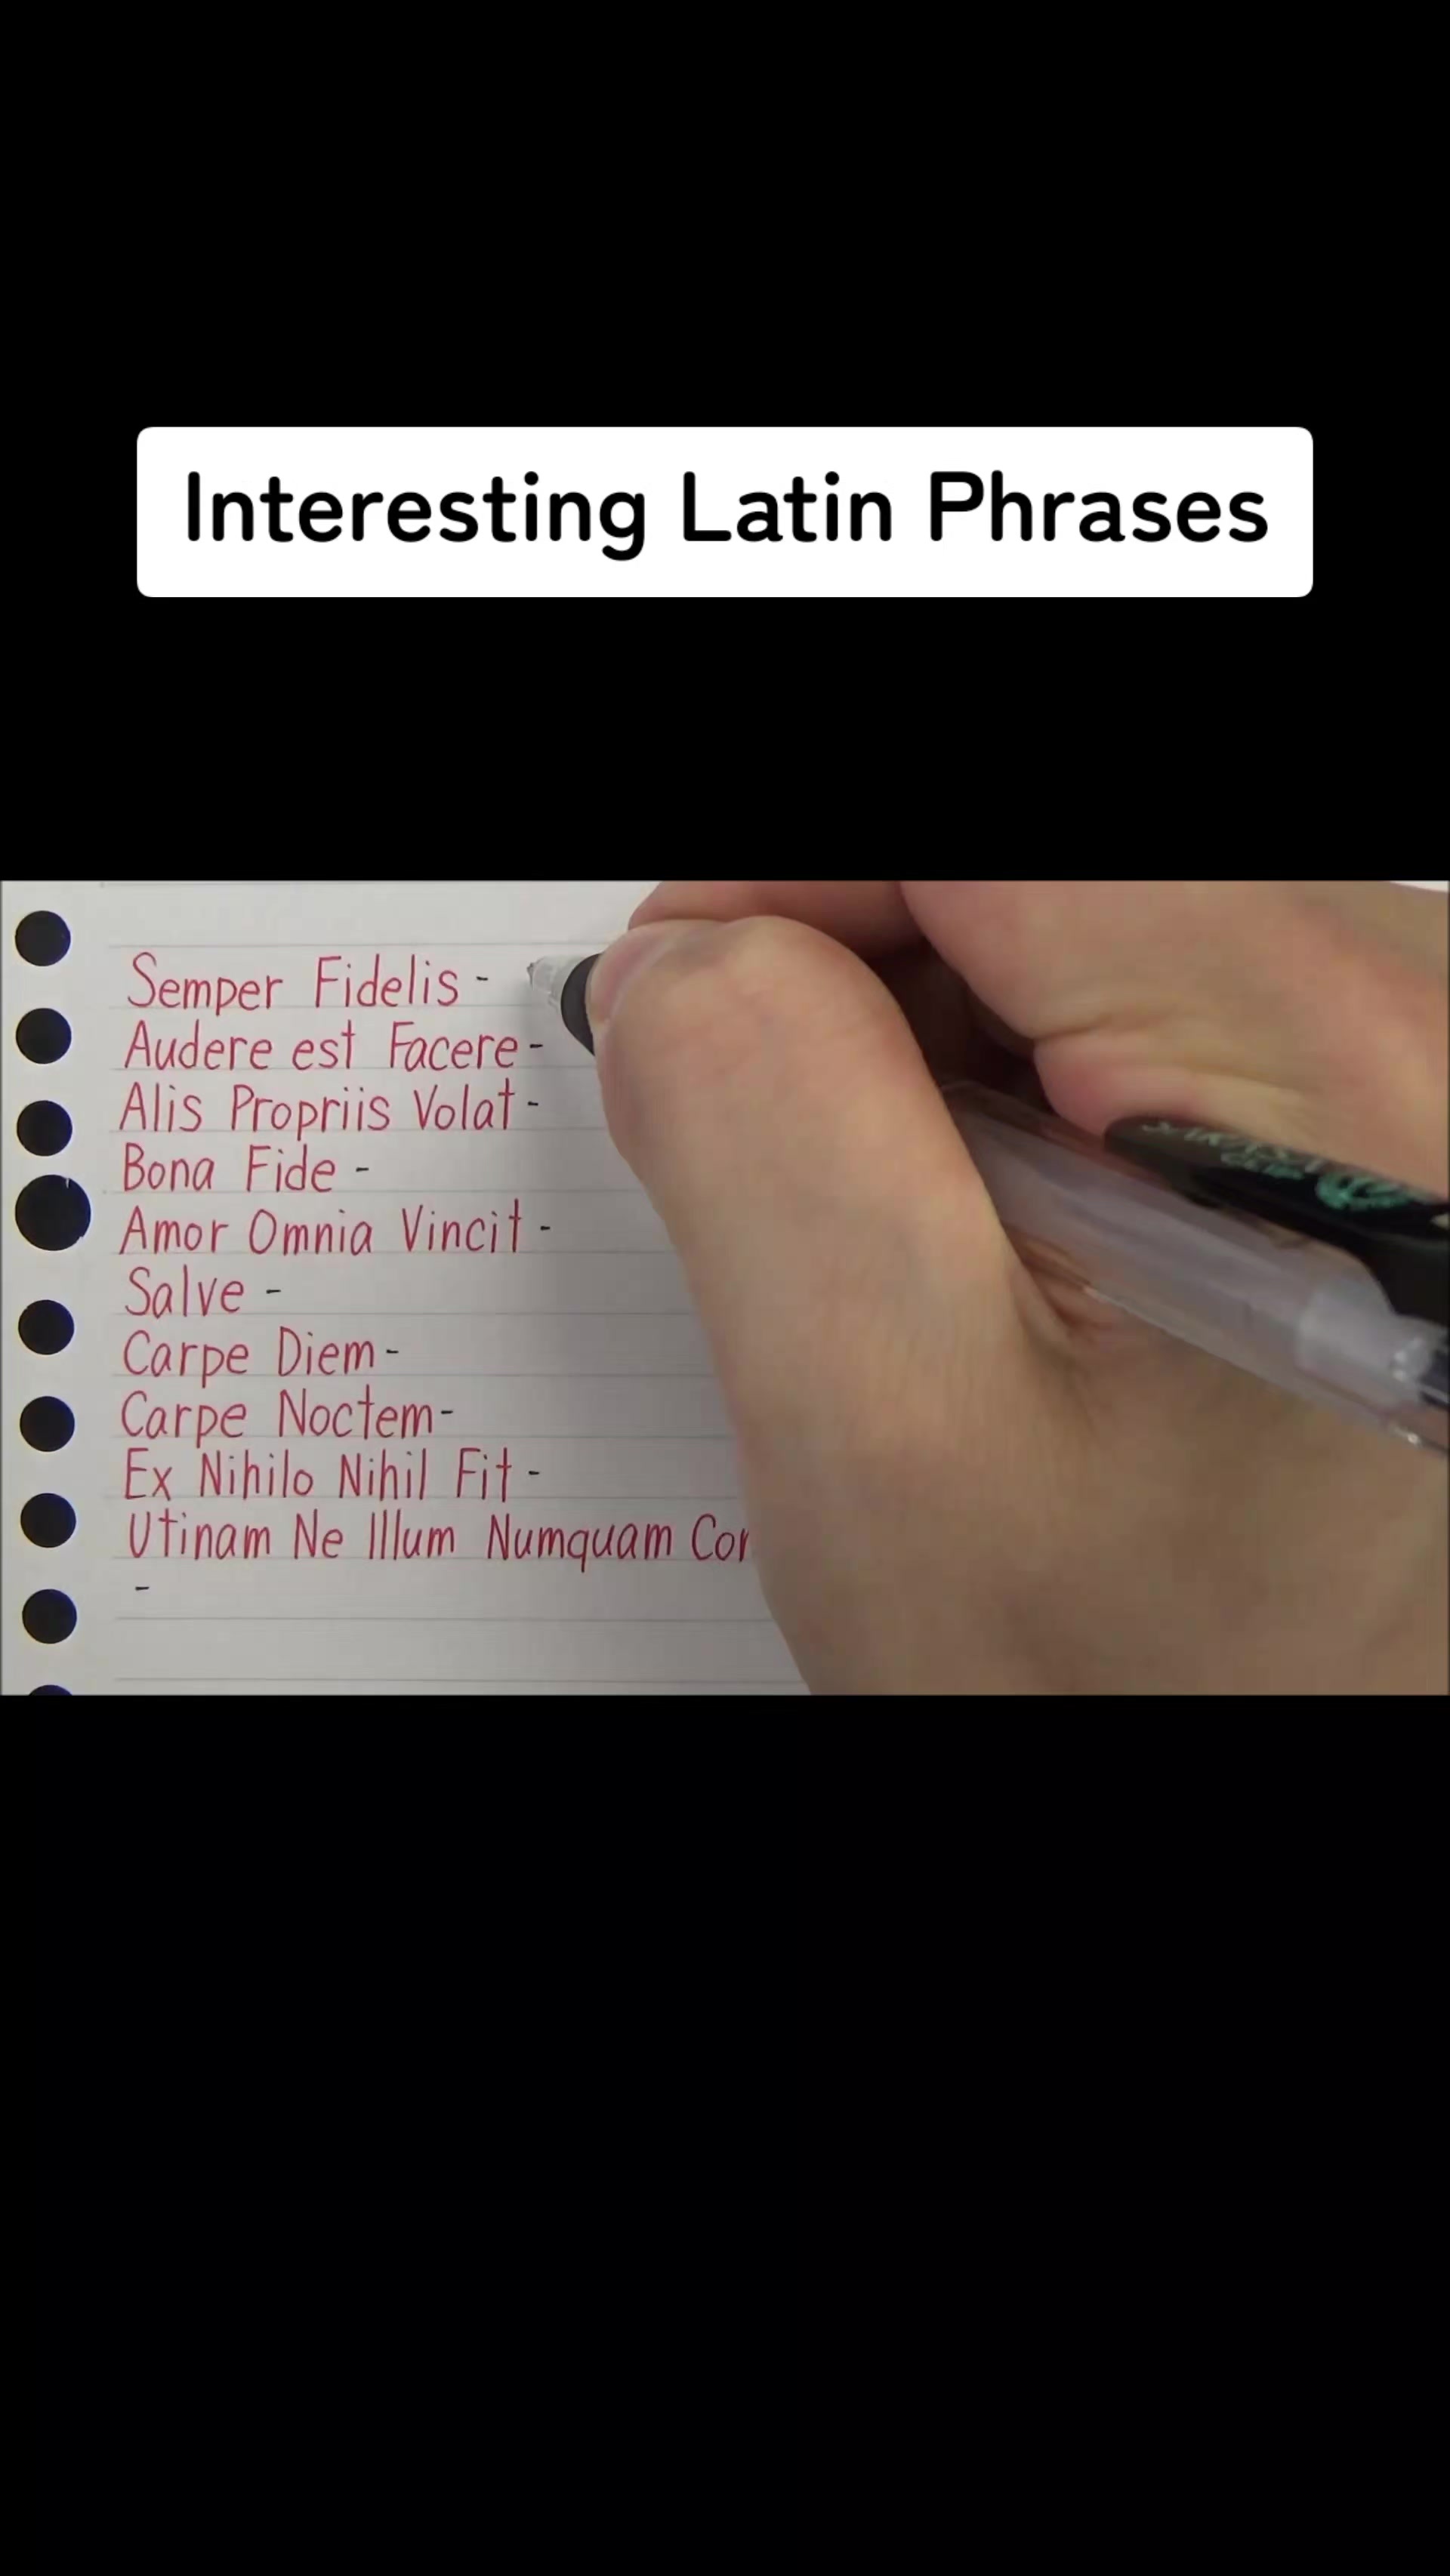 Interesting Latin Phrases
Semper Fidelis -
Audere est Facere -
Alis Propriis Volat -
Bona Fide -
Amor Omnia Vincit -
Salve -
Carpe Diem -
Carpe Noctem -
Ex Nihilo Nihil Fit -
Utinam Ne Illum Numquam
-